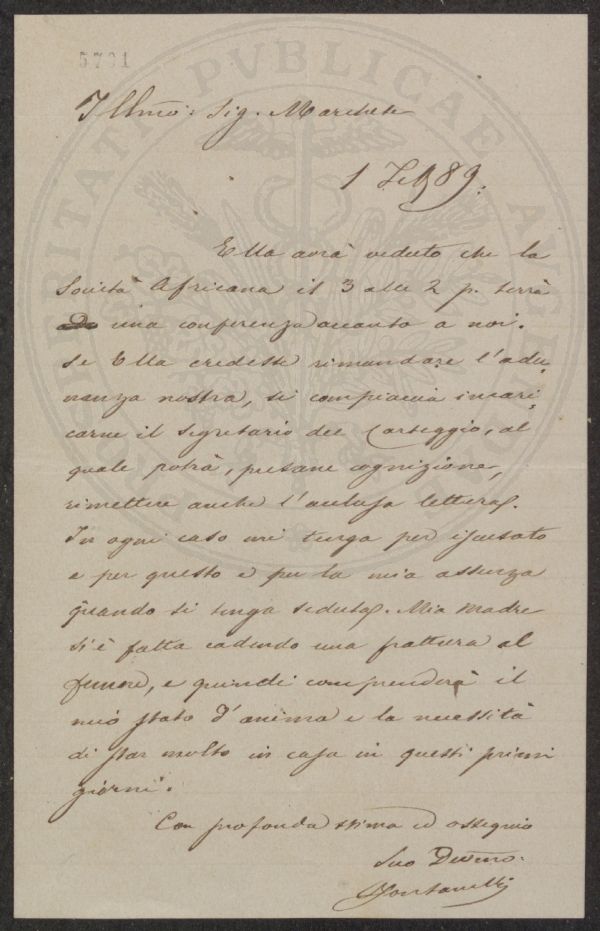 5731
Illmo: Sig. Marchese
1 Feb 89:
Ella avrà veduto che la
Società Africana il 3 alle 2 p. terrà
una conferenza accanto a noi.
Se Ella credesse rimandare l'adu-
nanza nostra, si compiaccia incari-
carne il Segretario del Carteggio, al
quale potrà, presane cognizione,
rimettere anche l'acclusa lettera.
In ogni caso mi tenga per iscusato
e per questo e per la mia assenza
quando si tenga seduta. Mia madre
si è fatta cadendo una frattura al
femore, e quindi comprenderà il
mio stato d'anima e la necessità
di star molto in casa in questi primi
giorni.
Con profonda stima ed ossequio
Suo Devmo:
Fontanelli